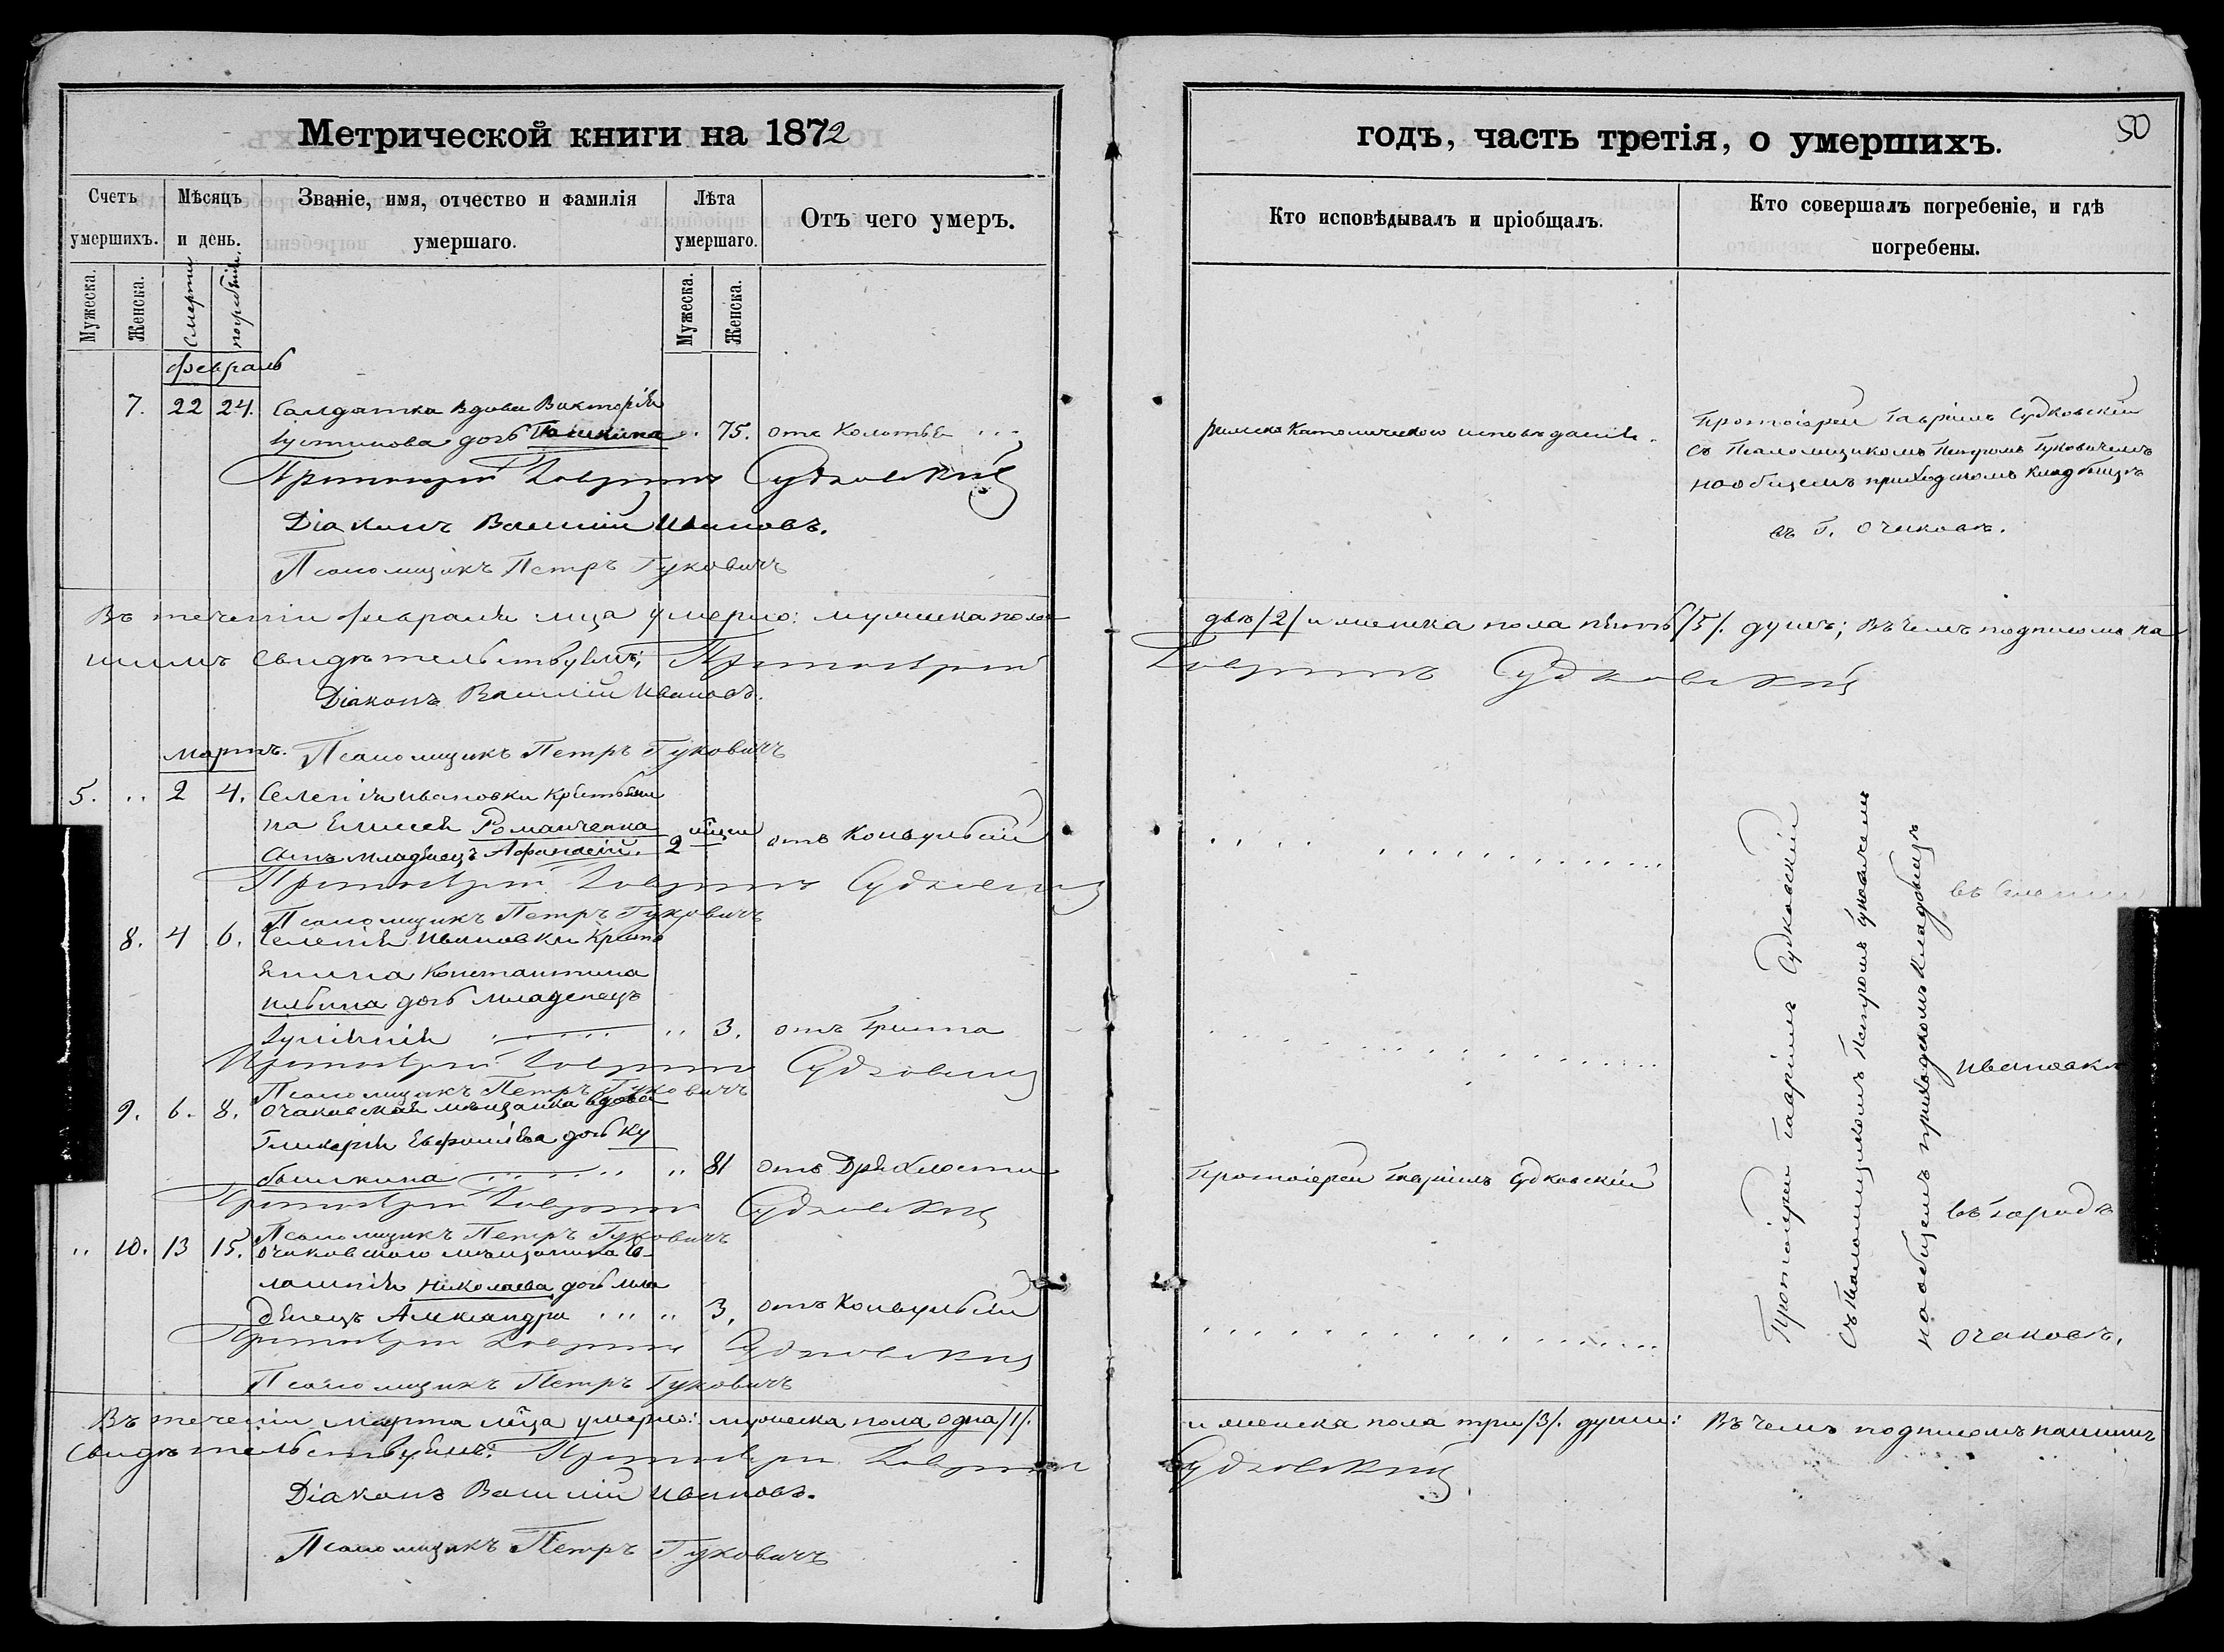 Метрической книги на 1872
Счетъ умершихъ.
Мѣсяцъ и день.
Званіе, имя, отчество и фамилія умершаго.
Лѣта умершаго.
Отъ чего умеръ.
Мужеска.
Женска.
Смерти
погребенія.
Мужеска.
Женска.
февраль
7. 22 24. Солдатка вдова Викторія
Іустинова дочь .. 75. отъ Колотья ...
Протоіерей Гавріилъ Судковскій
Діаконъ Василій Ивановъ.
Псаломщикъ Петръ Гуковичъ
Въ теченіи февраля мца умерло: мужеска пола
шимъ свидѣтельствуемъ; Протоіерей
Діаконъ Василій Ивановъ.
мартъ. Псаломщикъ Петръ Гуковичъ
5. .. 2 4. Селенія Ивановки Крестьяни
на Елисея Романченка
сынъ младенецъ Афанасій. 2 отъ Конвульсій
Протоіерей Гавріилъ Судковскій
Псаломщикъ Петръ Гуковичъ
8. 4 6. Селенія Ивановки Кресть
янина Константина
Ильина дочь младенецъ
.. 3. отъ Гриппа
Протоіерей Гавріилъ Судковскій
Псаломщикъ Петръ Гуковичъ
9. 6. 8. Очаковская мѣщанка вдова
Гликерія дочь Ку
.. 81 отъ Дряхлости
Протоіерей Гавріилъ Судковскій
Псаломщикъ Петръ Гуковичъ
.. 10. 13 15. Очаковского мѣщанина Ев
лампія Николаева дочь мла
денецъ Александра ... .. 3. отъ Конвульсій
Протоіерей Гавріилъ Судковскій
Псаломщикъ Петръ Гуковичъ
Въ теченіи Марта мца умерло: мужеска пола одна /1/.
Свидѣтельствуемъ: Протоіерей Гавріилъ
Діаконъ Василій Ивановъ.
Псаломщикъ Петръ Гуковичъ
годъ, часть третія, о умершихъ.
50
Кто исповѣдывалъ и пріобщалъ.
Кто совершалъ погребеніе, и гдѣ погребены.
римско Католическаго исповѣданія.
Протоіерей Гавріилъ Судковскій
съ Псаломщикомъ Петромъ Гуковичемъ
на общемъ приходскомъ кладбищѣ
въ г. Очаковѣ.
двѣ /2/ и женска пола пять /5/. душъ; въ чемъ подписомъ на
Гавріилъ Судковскій
Протоіерей Гавріилъ Судковскій
Протоіерей Гавріилъ Судковскій
съ Псаломщикомъ Петромъ Гуковичемъ
на общемъ приходскомъ кладбищѣ
въ Селеніи
Ивановкѣ
въ Городѣ
Очаковѣ.
и женска пола три /3/. души: Въ чемъ подписомъ нашимъ
Судковскій